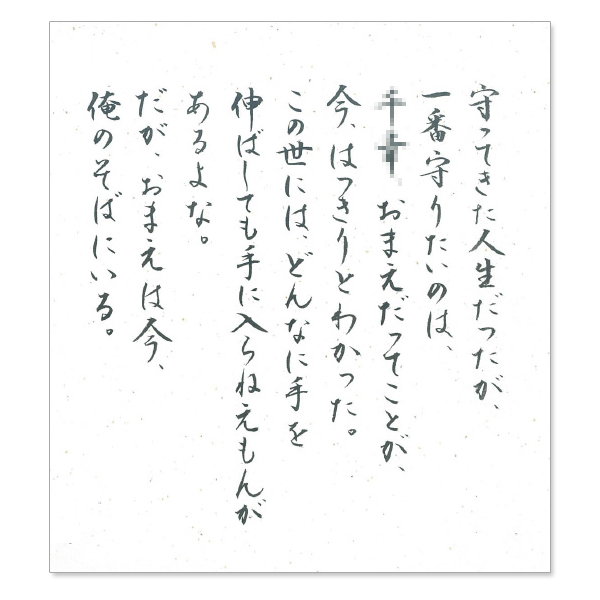 守ってきた人生だったが、
一番守りたいのは、
おまえだってことが、
今、はっきりとわかった。
この世には、どんなに手を
伸ばしても手に入らねえもんが
あるよな。
だが、おまえは今、
俺のそばにいる。